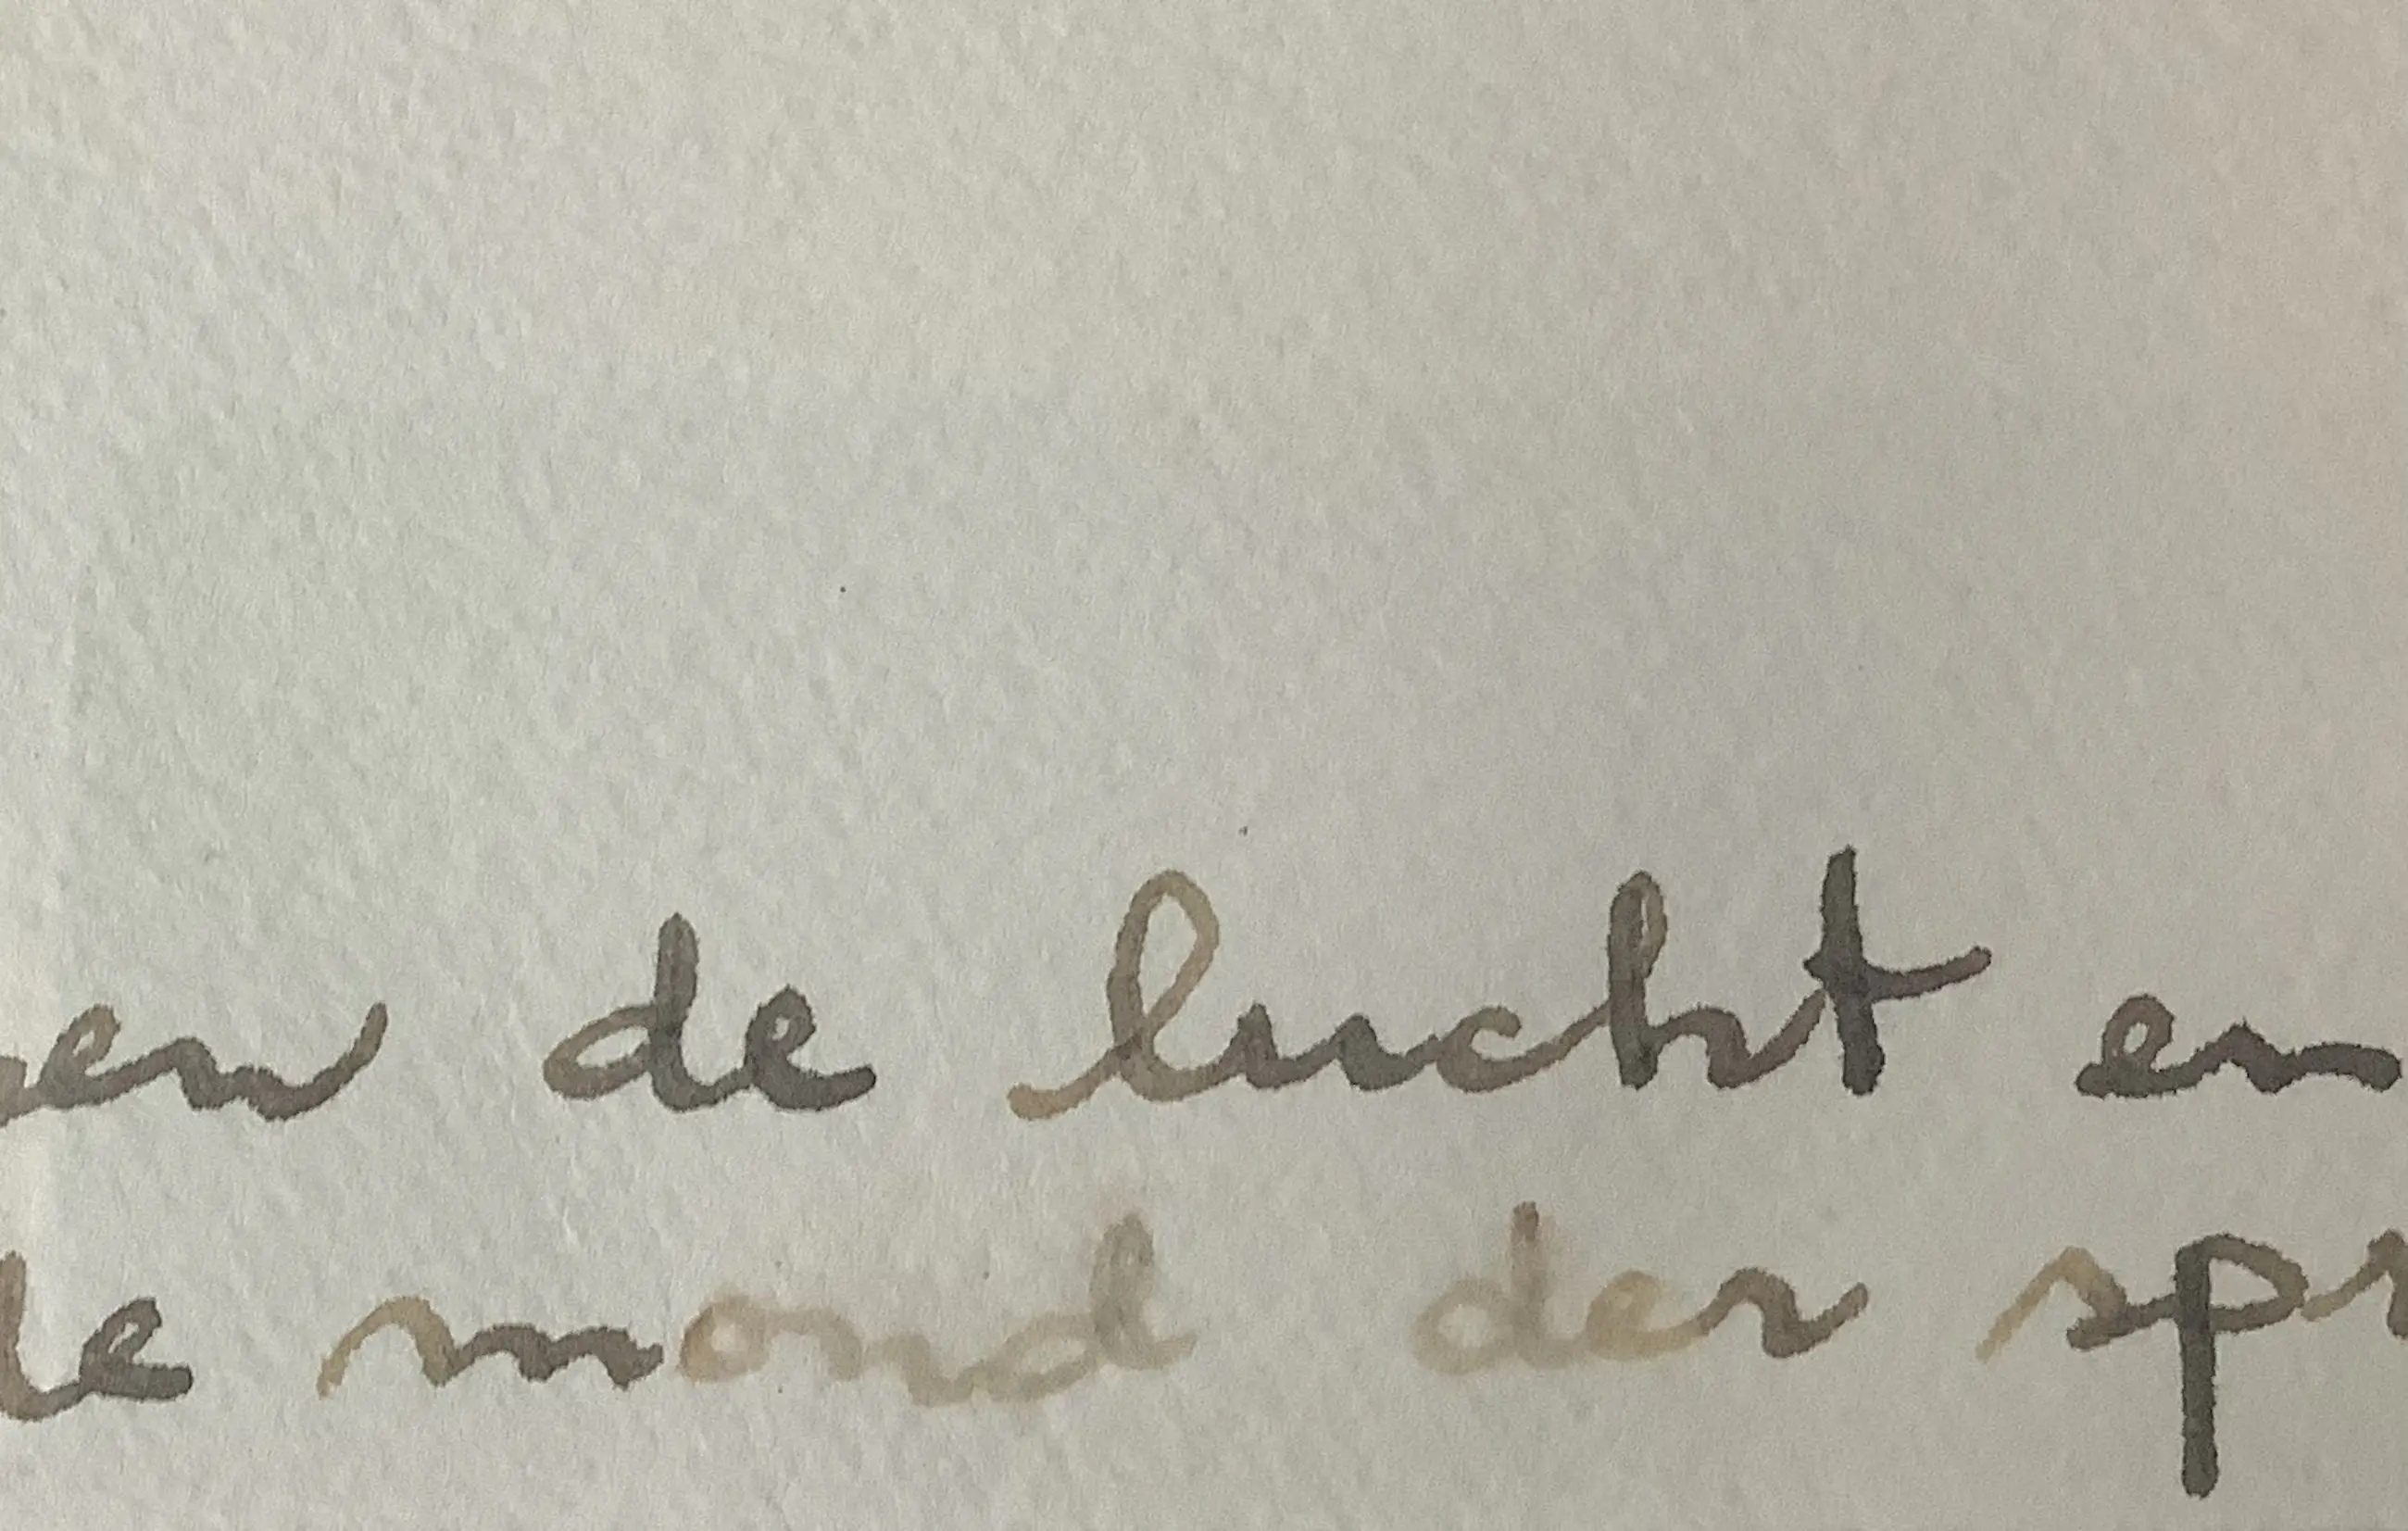 en de lucht en
de mond der spr